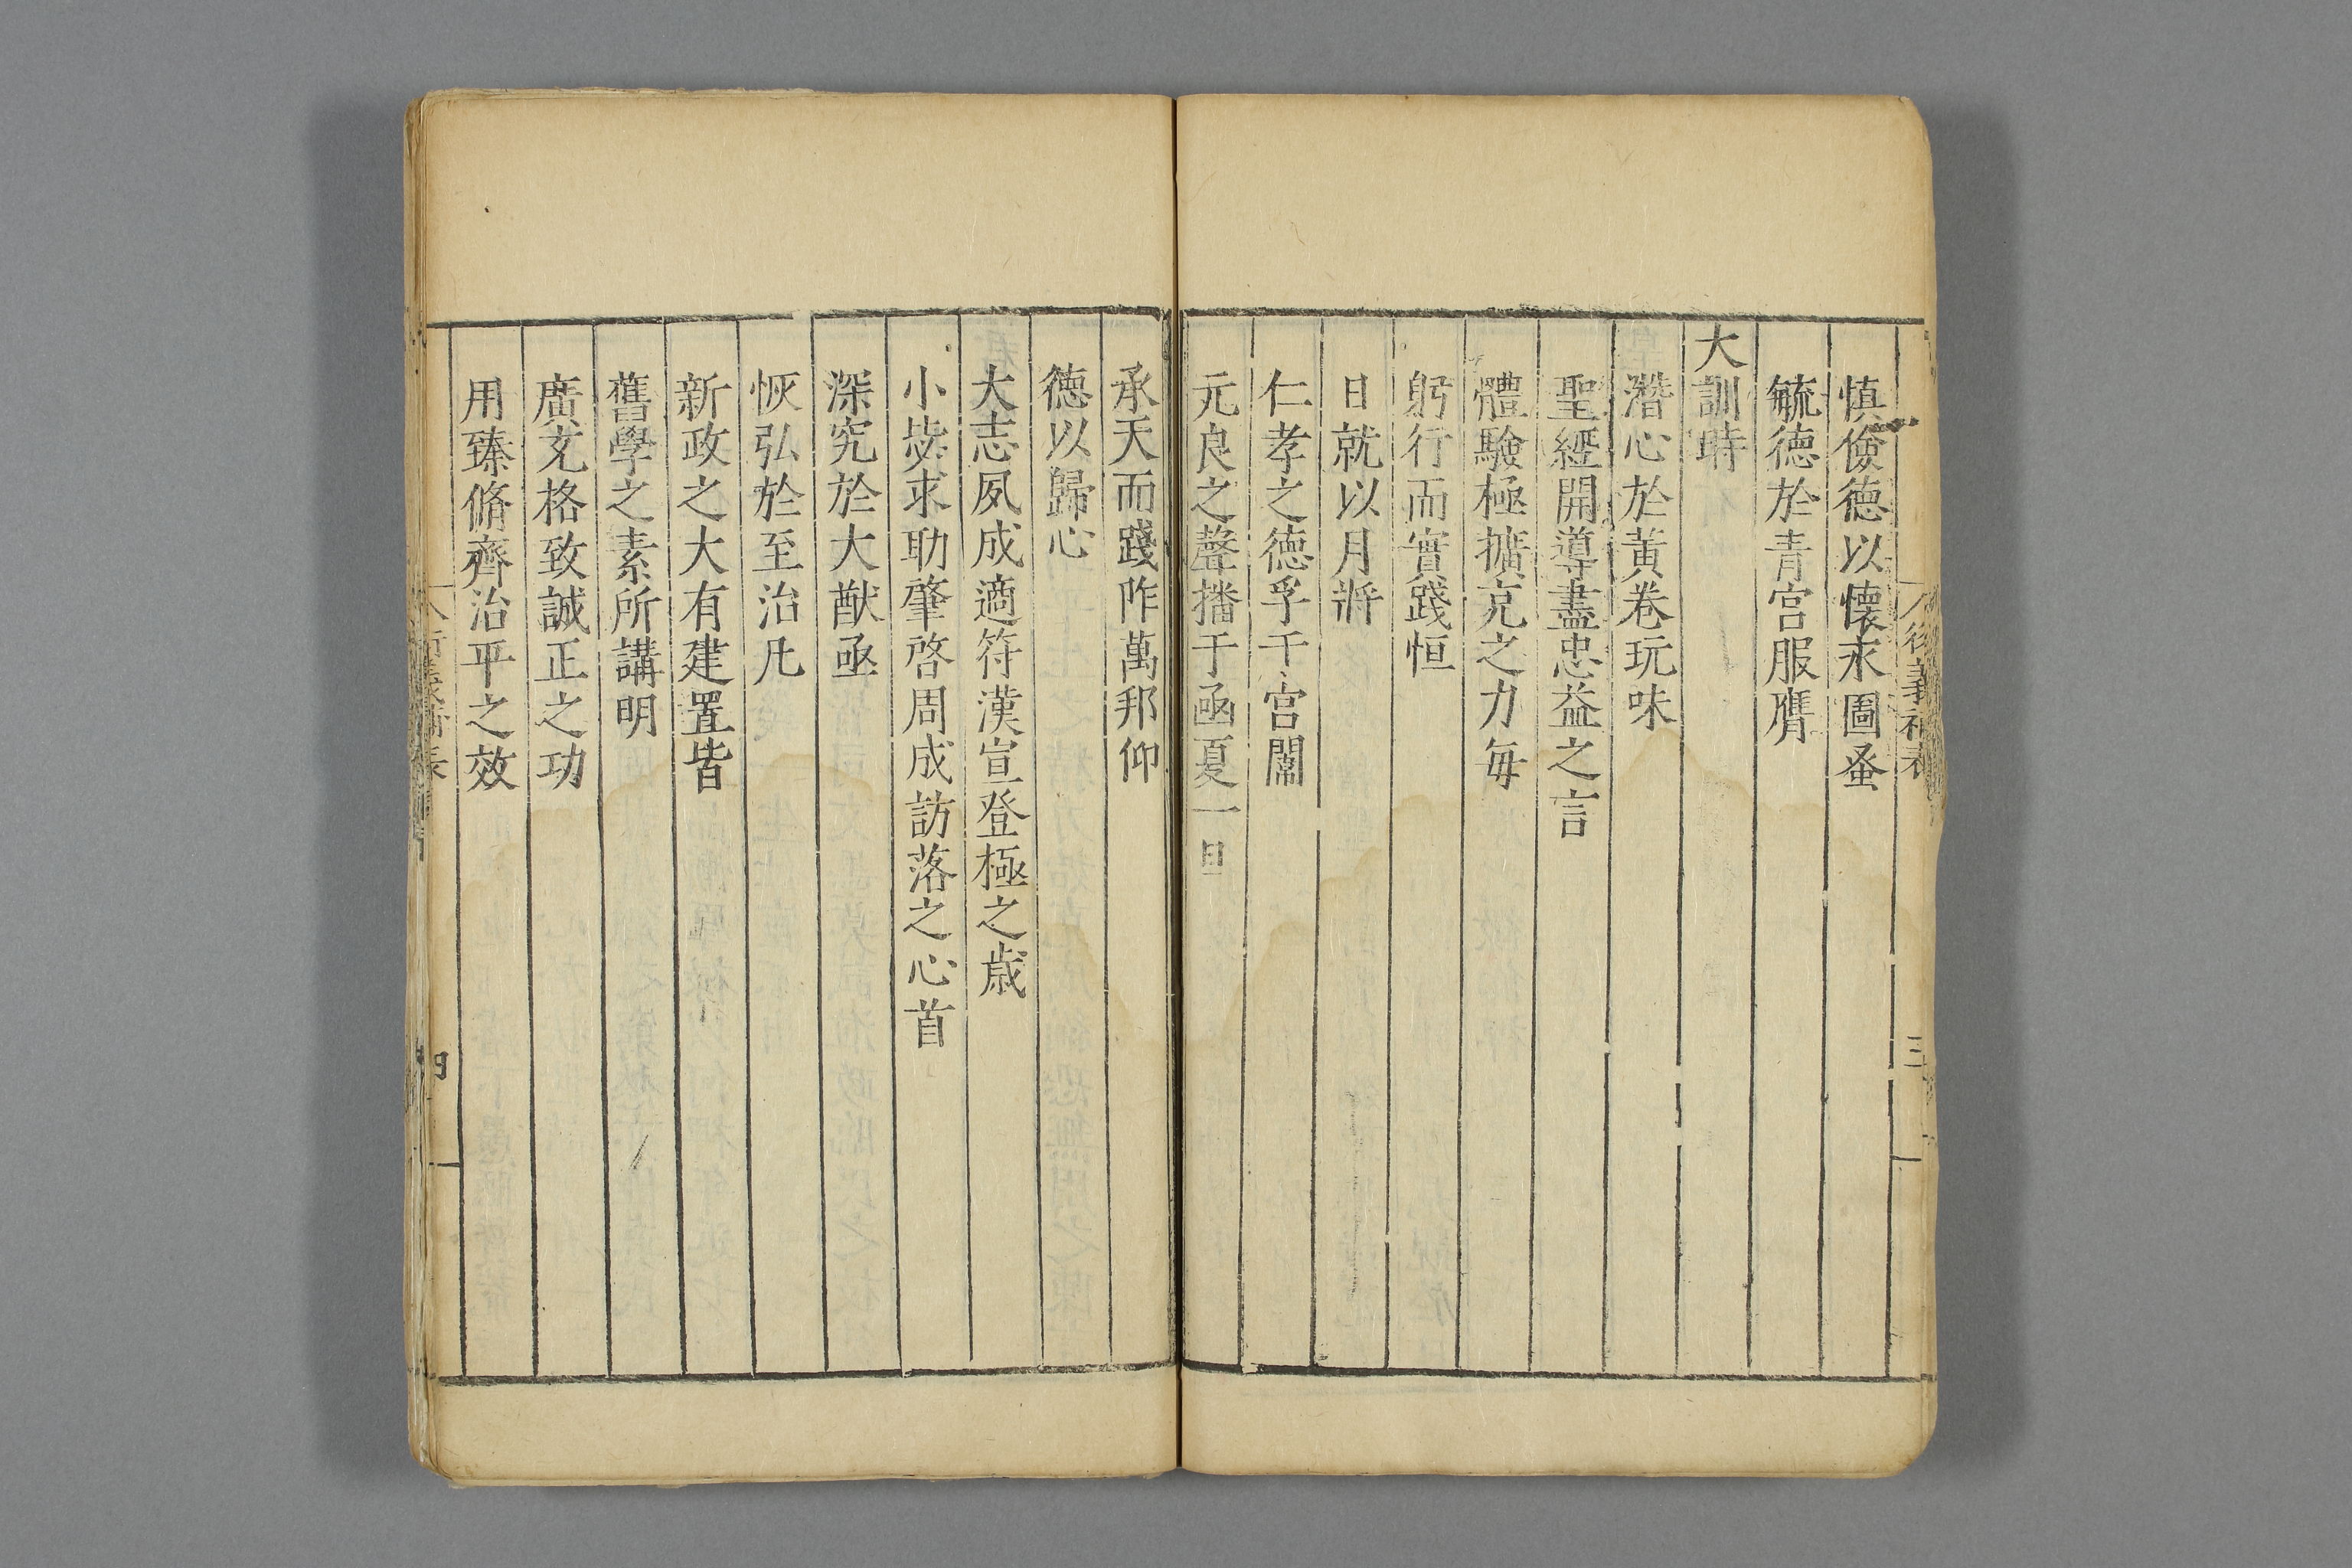 慎儉德以懷永圖蚤
毓德於青宮服膺
大訓時
潛心於黄卷玩味
聖經開導盡忠益之言
體驗極擴充之力每
躬行而實踐恒
日就以月將
仁孝之德孚于宮闈
元良之聲播于函夏一日
承天而踐阼萬邦仰
德以歸心
大志夙成適符漢宣登極之歲
小毖求助肇啓周成訪落之心首
深究於大猷亟
恢弘於至治凡
新政之大有建置皆
舊學之素所講明
廣充格致誠正之功
用臻脩齊治平之效
衍義補表
三
四